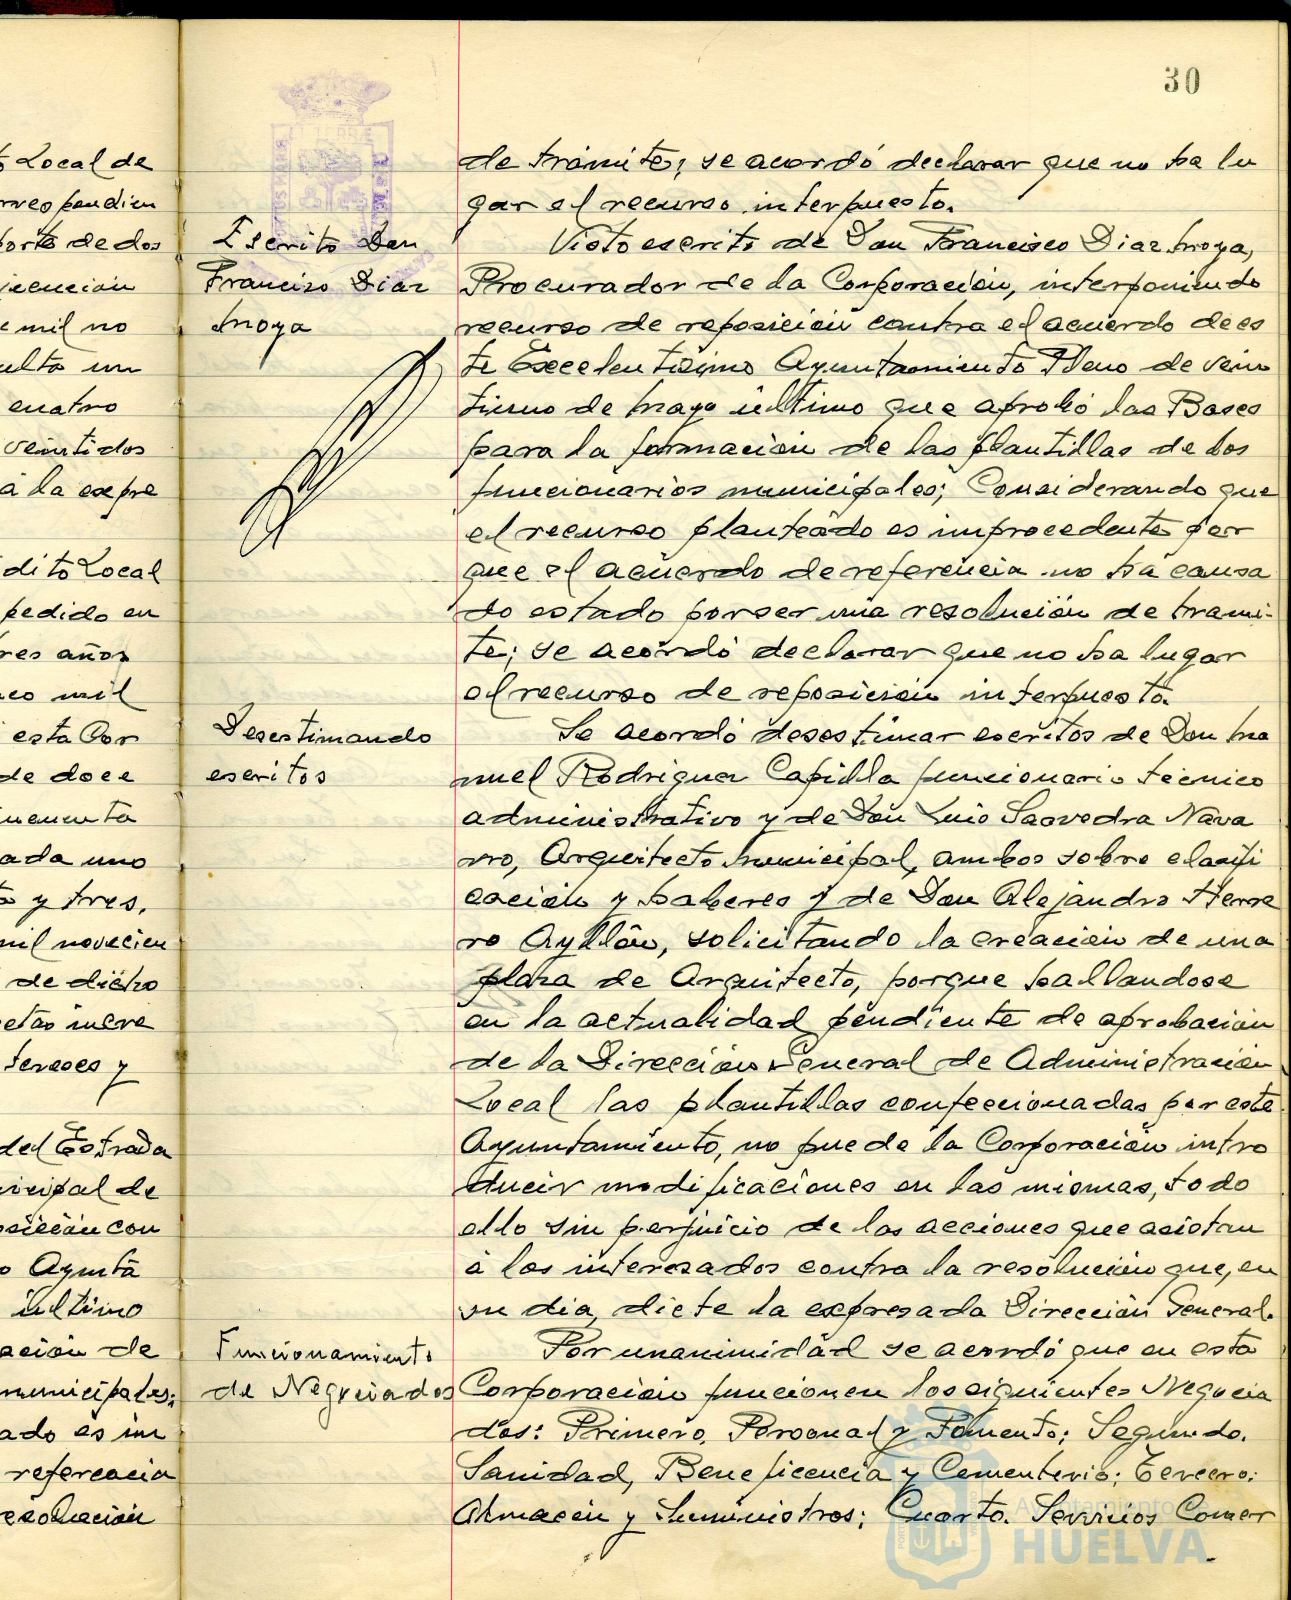 30
to Local de
rrespondien
porte de dos
jecución
e mil no
ulta un
cuatro
veintidos
á la expre
dito Local
pedido en
res años
nco mil
esta Cor
de doce
ncuenta
ada uno
y tres,
mil novecien
de dicho
etas nueve
tereses y
del Estrada
nicipal de
osición con
o Ayunta
último
ación de
municipales;
ado es im
referencia
resolución
de trámite; se acordó declarar que no ha lu
gar al recurso interpuesto.
Escrito Don
Francisco Diaz
Moya
Visto escrito de Don Francisco Diaz Moya,
Procurador de la Corporación, interponiendo
recurso de reposición contra el acuerdo de es
te Excelentisimo Ayuntamiento Pleno de vein
tiuno de Mayo último que aprobó las Bases
para la formación de las plantillas de los
funcionarios municipales; Considerando que
el recurso planteado es improcedente por
que el acuerdo de referencia no ha causa
do estado por ser una resolución de trami-
te; se acordó declarar que no ha lugar
al recurso de reposición interpuesto.
Desestimando
escritos
Se acordó desestimar escritos de Don Ma
nuel Rodriguez Capilla funcionario técnico
administrativo y de Don Luis Saavedra Nava
rro, Arquitecto Municipal, ambos sobre clasifi
cación y haberes y de Don Alejandro Herre
ro Ayllón, solicitando la creación de una
plaza de Arquitecto, porque hallandose
en la actualidad pendiente de aprobación
de la Dirección General de Administración
Local las plantillas confeccionadas por este
Ayuntamiento, no puede la Corporación intro
ducir modificaciones en las mismas, todo
ello sin perjuicio de las acciones que asistan
á los interesados contra la resolución que, en
su dia, dicte la expresada Dirección General.
Funcionamiento
de Negociados
Por unanimidad se acordó que en esta
Corporación funcionen los siguientes Negocia
dos: Primero, Personal y Fomento; Segundo.
Sanidad, Beneficencia y Cementerio; Tercero:
Almacén y Suministros; Cuarto. Servicios Comer
Ayuntamiento de
HUELVA